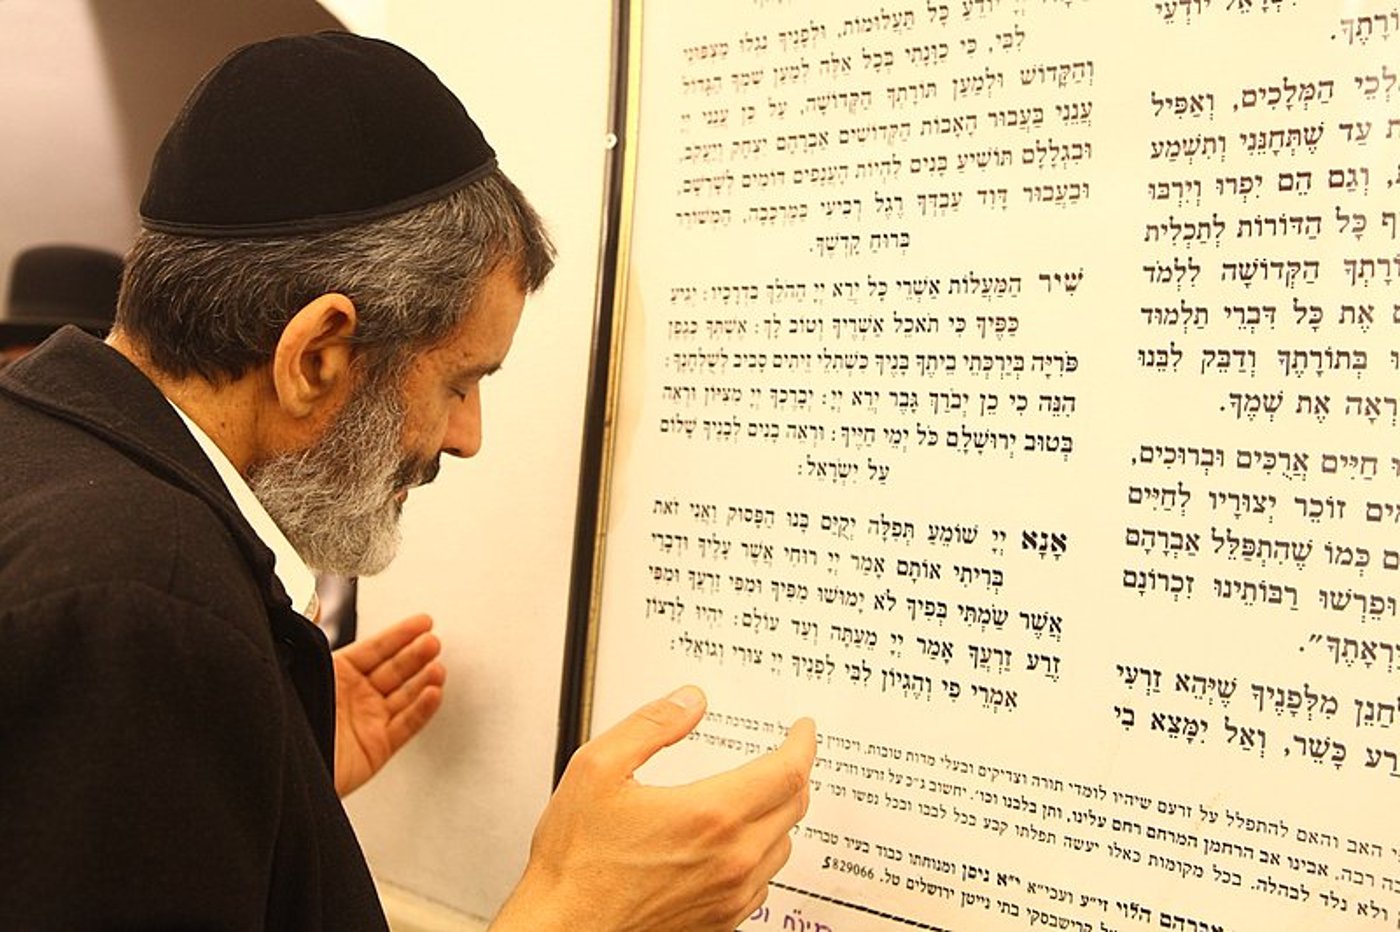 יוֹדְעֵי
הַמְּלָכִים, וְאַפִּיל
עַד שֶׁתְּחָנֵּנִי וְתִשְׁמַע
וְגַם הֵם יִפְרוּ וְיִרְבּוּ
כָּל הַדּוֹרוֹת לְתַכְלִית
הַקְּדוֹשָׁה לִלְמֹד
אֶת כָּל דִּבְרֵי תַלְמוּד
בְּתוֹרָתֶךָ וְדַבֵּק לִבֵּנוּ
אֶת שְׁמֶךָ.
חַיִּים אֲרֻכִּים וּבְרוּכִים,
זוֹכֵר יְצוּרָיו לְחַיִּים
כְּמוֹ שֶׁהִתְפַּלֵּל אַבְרָהָם
וּפֵרְשׁוּ רַבּוֹתֵינוּ זִכְרוֹנָם
מִלְּפָנֶיךָ שֶׁיְּהֵא זַרְעִי
כָּשֵׁר, וְאַל יִמָּצֵא בִי
יוֹדֵעַ כָּל תַּעֲלוּמוֹת, וּלְפָנֶיךָ נִגְלוּ מַצְפּוּנֵי
לִבִּי, כִּי כַוָּנָתִי בְּכָל אֵלֶּה לְמַעַן שִׁמְךָ הַגָּדוֹל
וְהַקָּדוֹשׁ וּלְמַעַן תּוֹרָתְךָ הַקְּדוֹשָׁה, עַל כֵּן עֲנֵנִי יְיָ
עֲנֵנִי בַּעֲבוּר הָאָבוֹת הַקְּדוֹשִׁים אַבְרָהָם יִצְחָק וְיַעֲקֹב,
וּבִגְלָלָם תּוֹשִׁיעַ בָּנִים לִהְיוֹת הָעֲנָפִים דּוֹמִים לְשָׁרְשָׁם,
וּבַעֲבוּר דָּוִד עַבְדְּךָ רֶגֶל רְבִיעִי בַּמֶּרְכָּבָה, הַמְשׁוֹרֵר
בְּרוּחַ קָדְשֶׁךָ.
שִׁיר הַמַּעֲלוֹת אַשְׁרֵי כָּל יְרֵא יְיָ הַהֹלֵךְ בִּדְרָכָיו: יְגִיעַ
כַּפֶּיךָ כִּי תֹאכֵל אַשְׁרֶיךָ וְטוֹב לָךְ: אֶשְׁתְּךָ כְּגֶפֶן
פֹּרִיָּה בְּיַרְכְּתֵי בֵיתֶךָ בָּנֶיךָ כִּשְׁתִלֵי זֵיתִים סָבִיב לְשֻׁלְחָנֶךָ:
הִנֵּה כִי כֵן יְבֹרַךְ גָּבֶר יְרֵא יְיָ: יְבָרֶכְךָ יְיָ מִצִּיּוֹן וּרְאֵה
בְּטוּב יְרוּשָׁלָםִ כֹּל יְמֵי חַיֶּיךָ: וּרְאֵה בָנִים לְבָנֶיךָ שָׁלוֹם
עַל יִשְׂרָאֵל:
אָנָא יְיָ שׁוֹמֵעַ תְּפִלָּה יְקֻיַּם בָּנוּ הַפָּסוּק וַאֲנִי זֹאת
בְּרִיתִי אוֹתָם אָמַר יְיָ רוּחִי אֲשֶׁר עָלֶיךָ וּדְבָרַי
אֲשֶׁר שַׂמְתִּי בְּפִיךָ לֹא יָמוּשׁוּ מִפִּיךָ וּמִפִּי זַרְעֲךָ וּמִפִּי
זֶרַע זַרְעֲךָ אָמַר יְיָ מֵעַתָּה וְעַד עוֹלָם: יִהְיוּ לְרָצוֹן
אִמְרֵי פִי וְהֶגְיוֹן לִבִּי לְפָנֶיךָ יְיָ צוּרִי וְגוֹאֲלִי:
האב והאם להתפלל על זרעם שיהיו לומדי תורה וצדיקים ובעלי מדות טובות, ויכוונו
רבה, אבינו אב הרחמן המרחם רחם עלינו, ותן בלבנו וכו'. יחשוב ג"כ על זרעו וזרע
ולא נלד לבהלה. בכל מקומות כאלו יעשה תפלתו קבע בכל לבבו ובכל נפשו וכו'
אברהם הלוי זי"ע ועכי"א י"א ניסן ומנוחתו כבוד בעיר טבריה
קרישבסקי בתי נייטן ירושלים טל. 829066